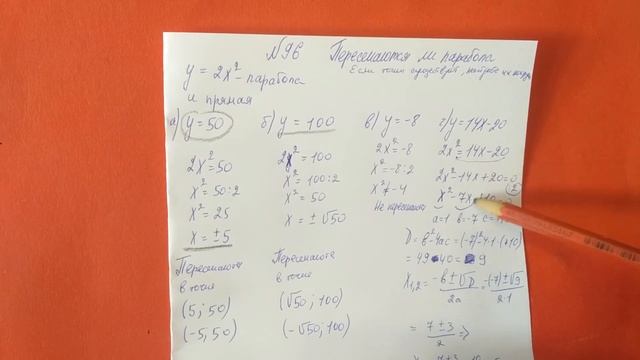 №96 Пересекаются ли парабола
y = 2x² - парабола
Если
и прямая
а) y = 50
2x² = 50
x² = 50:2
x² = 25
x = ±5
Пересекаются
в точке
(5; 50)
(-5; 50)
б) y = 100
2x² = 100
x² = 100:2
x² = 50
x = ±√50
Пересекаются
в точке
(√50; 100)
(-√50; 100)
в) y = -8
2x² = -8
x² = -8:2
x² ≠ -4
Не пересекают
г) y = 14x-20
2x² = 14x-20
2x²-14x+20=0
x²-7x
a=1 b=-7 c=
D = b²-4ac = (-7)²-4·1·(+10)
= 49-40 = 9
x₁,₂ = -b±√D/2a = -(-7)±√9/2·1
= 7±3/2 =>